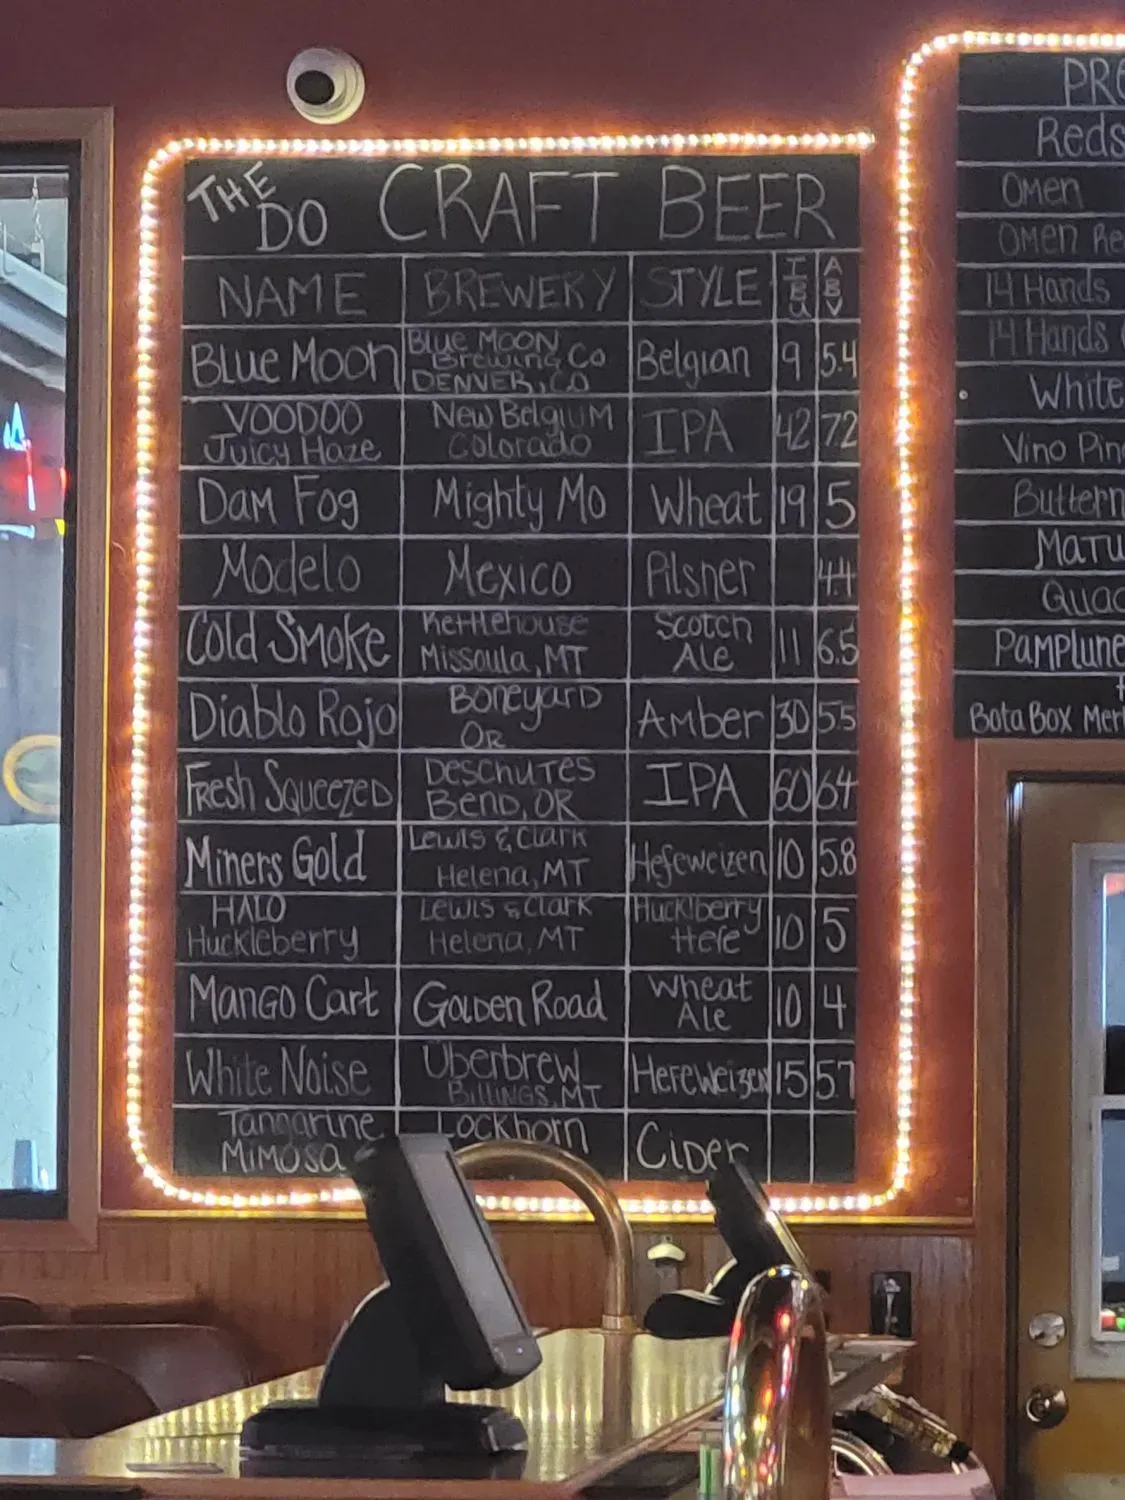 THE DO CRAFT BEER
NAME BREWERY STYLE IBU ABV
Blue Moon Blue Moon Brewing Co Denver, CO Belgian 9 5.4
VOODOO Juicy Haze New Belgium Colorado IPA 42 72
Dam Fog Mighty Mo Wheat 19 5
Modelo Mexico Pilsner 4.4
Cold Smoke Kettlehouse Missoula, MT Scotch Ale 11 6.5
Diablo Rojo Boneyard OR Amber 30 55
Fresh Squeezed Deschutes Bend, OR IPA 60 64
Miners Gold Lewis & Clark Helena, MT Hefeweizen 10 5.8
HALO Huckleberry Lewis & Clark Helena, MT Huckleberry Hefe 10 5
Mango Cart Golden Road Wheat Ale 10 4
White Noise Uberbrew Billings, MT Hefeweizen 15 57
Tangarine Mimosa Lockhorn Cider
Reds
Omen
Omen Re
14 Hands
14 Hands
White
Vino Pin
Buttern
Matu
Quad
Pamplune
Bota Box Merl